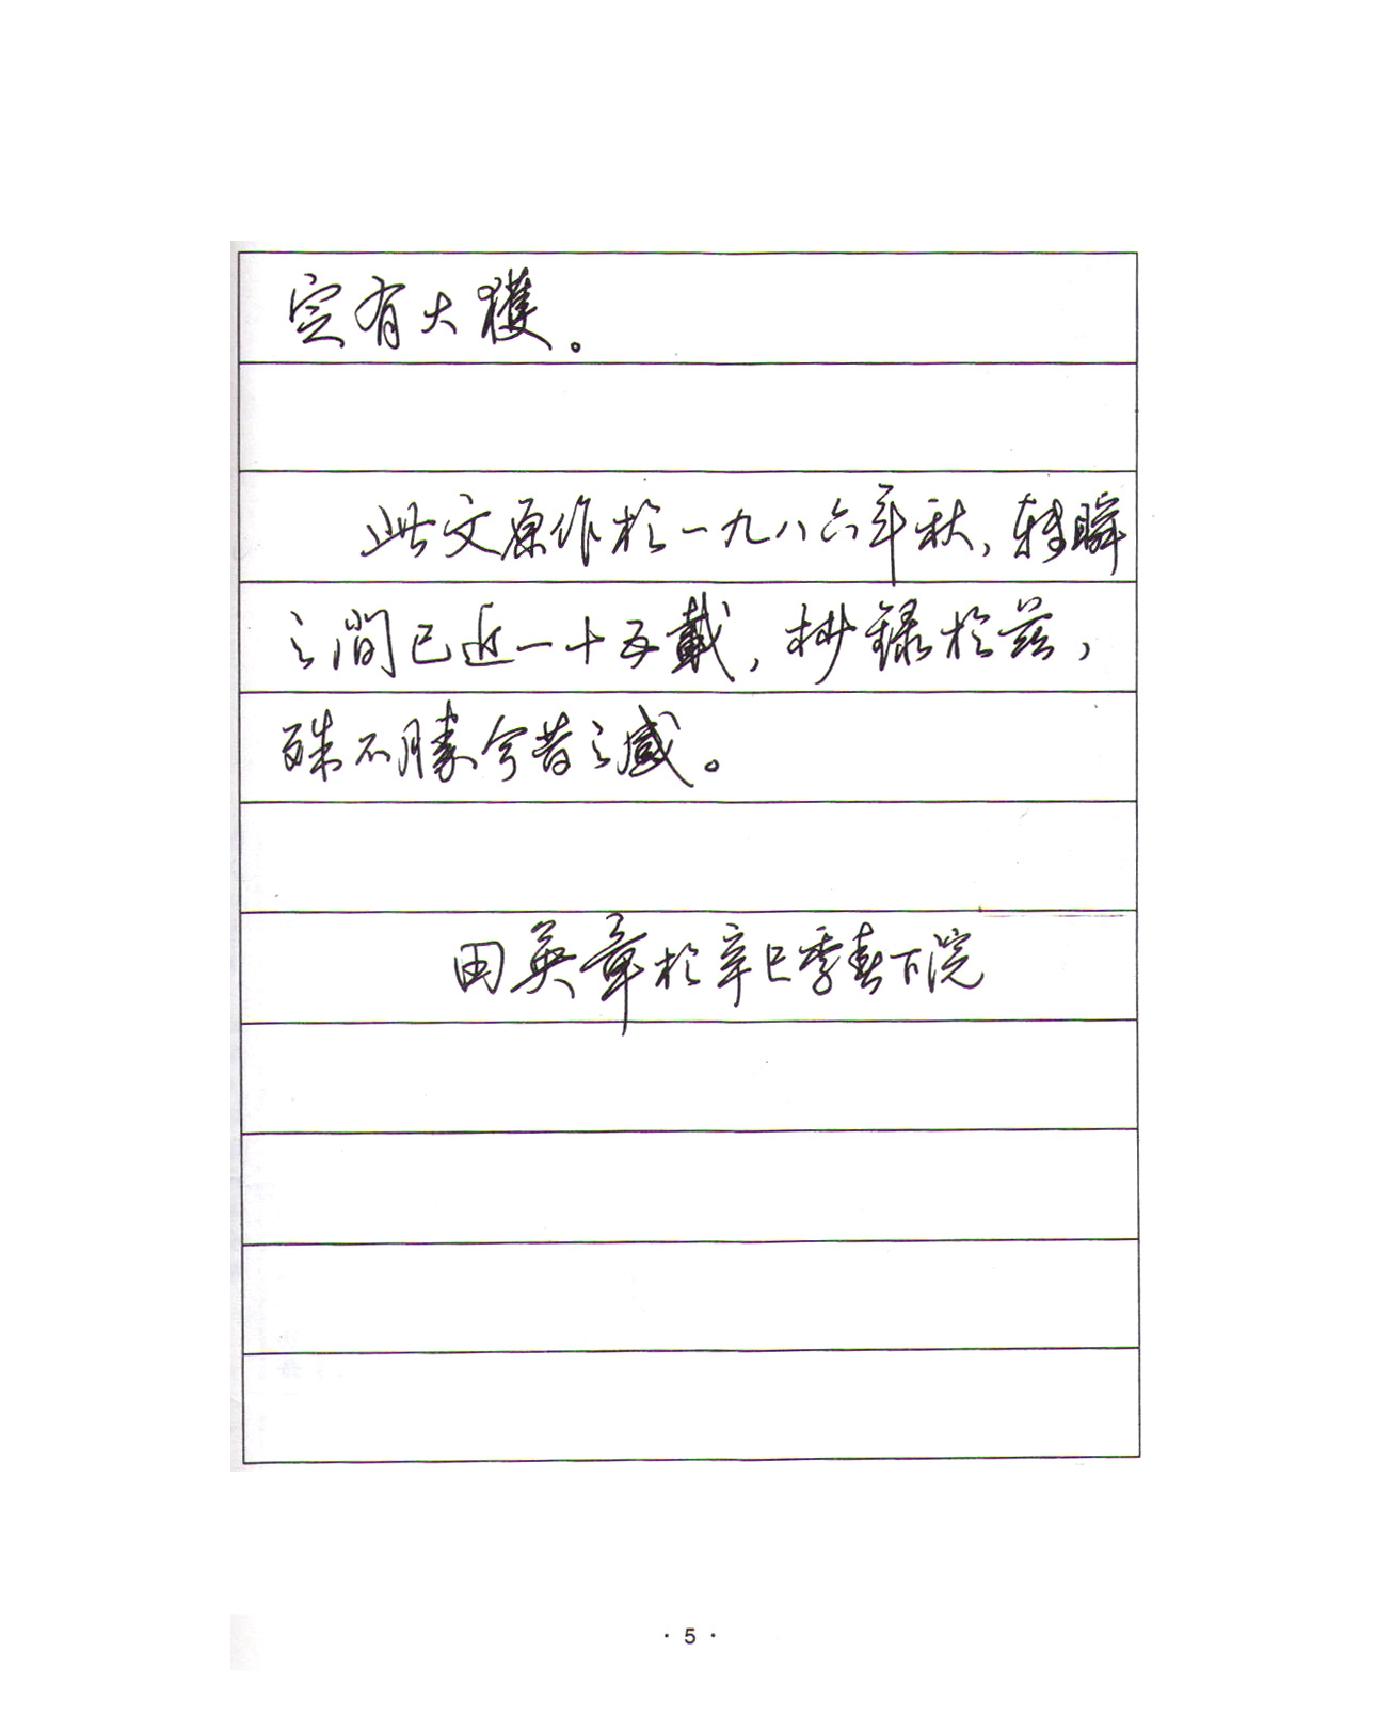 定有大獲。
此文原作於一九八六年秋，轉瞬
之間已近一十五載，抄録於兹，
殊不勝今昔之感。
田英章於辛巳季春下浣
· 5 ·